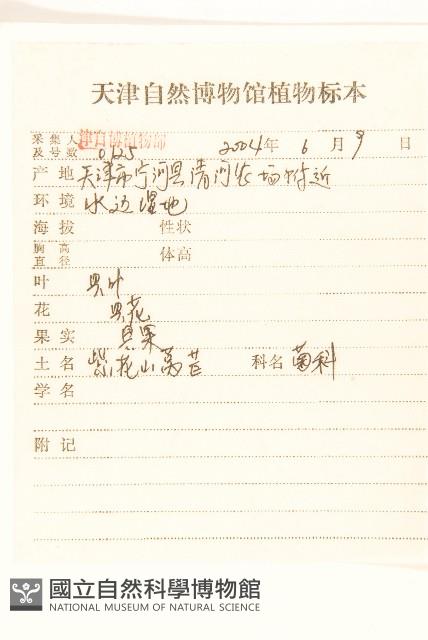 天津自然博物馆植物标本
采集人及号数 津自博植物部 0125 2004年 6 月 9 日
产地 天津市宁河县清河农场附近
环境 水边湿地
海拔 性状
胸高直径 体高
叶 具叶
花 具花
果实 具果
土名 紫花山莴苣 科名 菊科
学名
附记
國立自然科學博物館
NATIONAL MUSEUM OF NATURAL SCIENCE